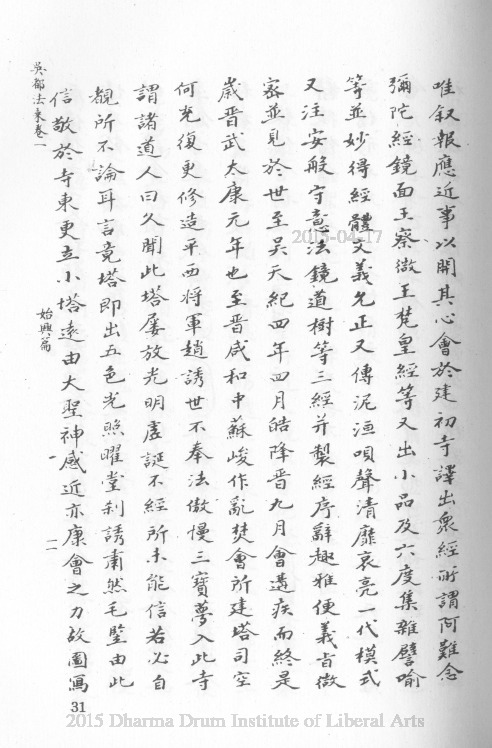 唯叙報應近事以開其心會於建初寺譯出衆經所謂阿難念
彌陀經鏡面王察微王梵皇經等又出小品及六度集雜譬喻
等並妙得經體文義允正又傳泥洹唄聲清靡哀亮一代模式
又注安般守意法鏡道樹等三經并製經序辭趣雅便義旨微
密並見於世至吳天紀四年四月皓降晉九月會遘疾而終是
歲晉武太康元年也至晉咸和中蘇峻作亂焚會所建塔司空
何充復更修造平西將軍趙誘世不奉法傲慢三寶夢入此寺
謂諸道人曰久聞此塔屢放光明虛誕不經所未能信若必自
覩所不論耳言竟塔即出五色光照曜堂刹誘肅然毛竪由此
信敬於寺東更立小塔遠由大聖神感近亦康會之力故圖寫
吳都法乘卷一
始興篇
一一
31
2015-04-17
2015 Dharma Drum Institute of Liberal Arts